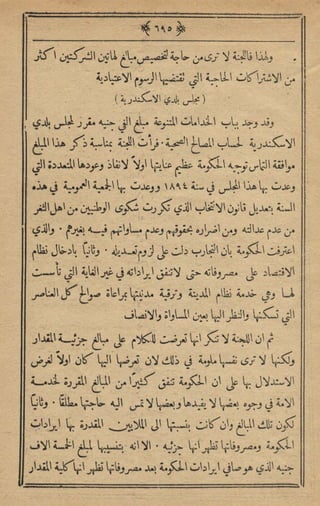 ﴿ ٦٩٥ ﴾
ولهذا فاللجنة لا ترى من حاجة لتخصيص مبالغ لهاتين الشركتين اكثر
من الاشتراكات الحاجية التي تقتضيها الرسوم الاعتيادية
( مجلس بلدي الاسكندرية )
وقد وجد بباب الخدامات المتنوعة مبلغ الفي جنيه مقرر لمجلس بلدي
الاسكندرية لحساب المصالح الصحية . فرأت اللجنة بمناسبة ذكر هذا المبلغ
موافقة التماس توجيه الحكومة عظيم عنايتها اولاً لانفاذ وعودها المتعددة التي
وعدت بها هذا المجلس في سنة ١٨٩٤ ووعدت بها الجمعية العمومية في هذه
السنة بتعديل قانون الانتخاب الذي تكررت شكوى الوطنيين من اهل الثغر
من عدم عدالته ومن اضراره بحقوقهم وعدم مساواتهم فيه بغيرهم . والذي
اعترفت الحكومة بان التجارب دلت على لزوم تعديله . وثانياً بادخال نظام
الاقتصاد على مصروفاته حتى لا تنفق ايراداته في غير الغاية التي تأسست
لها وهي خدمة نظام المدينة وترقية مدنيتها بمراعاة صوالح كل العناصر
التي تسكنها والنظر اليها بعين المساواة والانصاف
ثم ان اللجنة لا تنكر انها تعرضت للكلام على مبالغ جزئية المقدار
ولكنها لا ترى نفسها ملومة في ذلك لان تعرضها اليها كان اولاً لغرض
الاستدلال بها على ان الحكومة تنفق كثيراً من المبالغ المقررة لخدمة
الامة في وجوه بعضها لا يفيدها وبعضها لا تمس اليه حاجتها مطلقاً . وثانياً
لكون تلك المبالغ وان كانت بنسبتها الى الملايين المقدرة بها ايرادات
الحكومة ومصروفاتها تظهر انها جزئيه . الا انه بتنسيبها لمبلغ الخمسة الاف
جنيه الذي هو صافي ايرادات الحكومة بعد مصروفاتها تظهر انها كلية المقدار